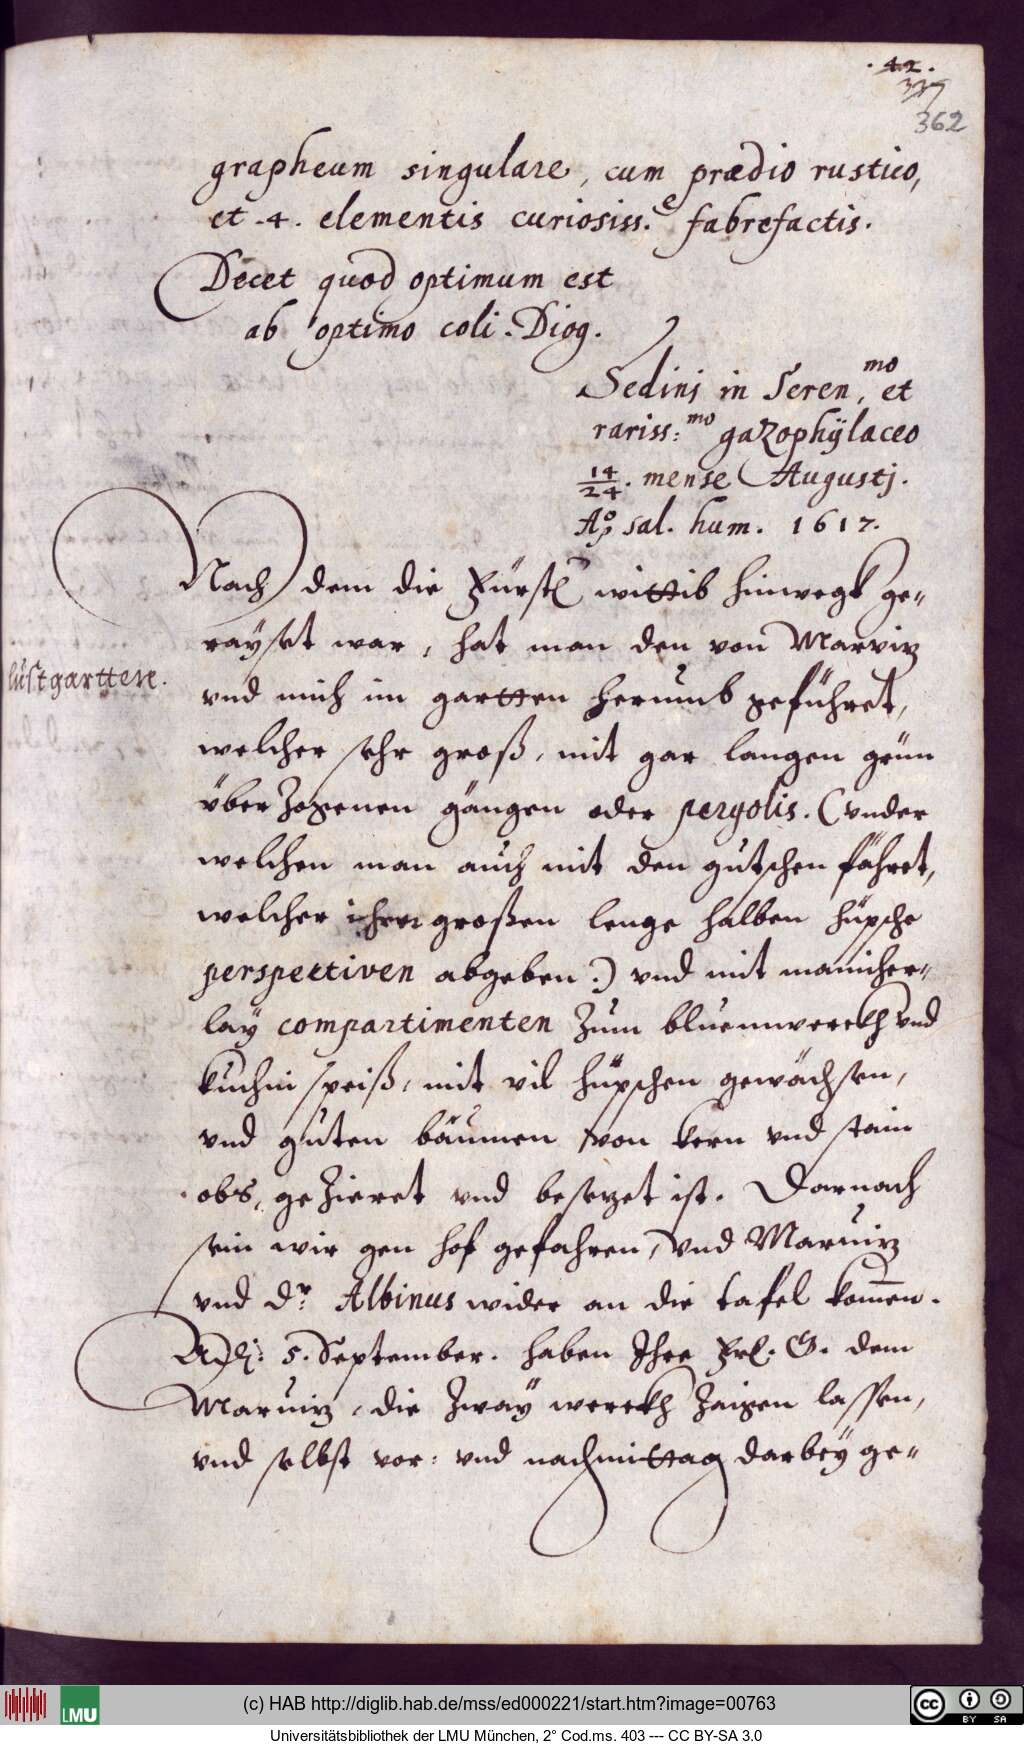 . 42 .
337
362
grapheum singulare, cum prædio rustico,
et .4. elementis curiosiss.e fabrefactis.
Decet quod optimum est
ab optimo coli. Diog.
Sedinj in Seren,mo et
rariss:mo gazophÿlaceo
14/24. mense Augustj.
Ao sal. hum. 1617.
Nach dem die Fürstl wittib hinwegk ge=
rayset war, hat man den von Marviz
lustgartten.
vnd mich im gartten herumb geführet,
welcher sehr groß, mit gar langen grün
überzogenen gängen oder pergolis. (vnder
welchen man auch mit den gutschen fähret,
welcher ihrer großen lenge halben hüpsche
perspectiven abgeben.) vnd mit manicher=
laÿ compartimenten zum bluemwerckh vnd
kuchin speiß, mit vil hüpschen gewächsen,
vnd guten bäumen von kern vnd stain
obs, gezieret vnd besezet ist. Darnach
sein wir gen hof gefahren, vnd Maruiz
vnd Dr: Albinus wider an die tafel kom̄en.
Adj: 5. September. haben Ihre Frl. G. dem
Maruiz, die zwaÿ werckh zaigen lassen,
vnd selbst vor: vnd nachmittag darbeÿ ge=
LMU
(c) HAB http://diglib.hab.de/mss/ed000221/start.htm?image=00763
cc BY SA
Universitätsbibliothek der LMU München, 2° Cod.ms. 403 --- CC BY-SA 3.0